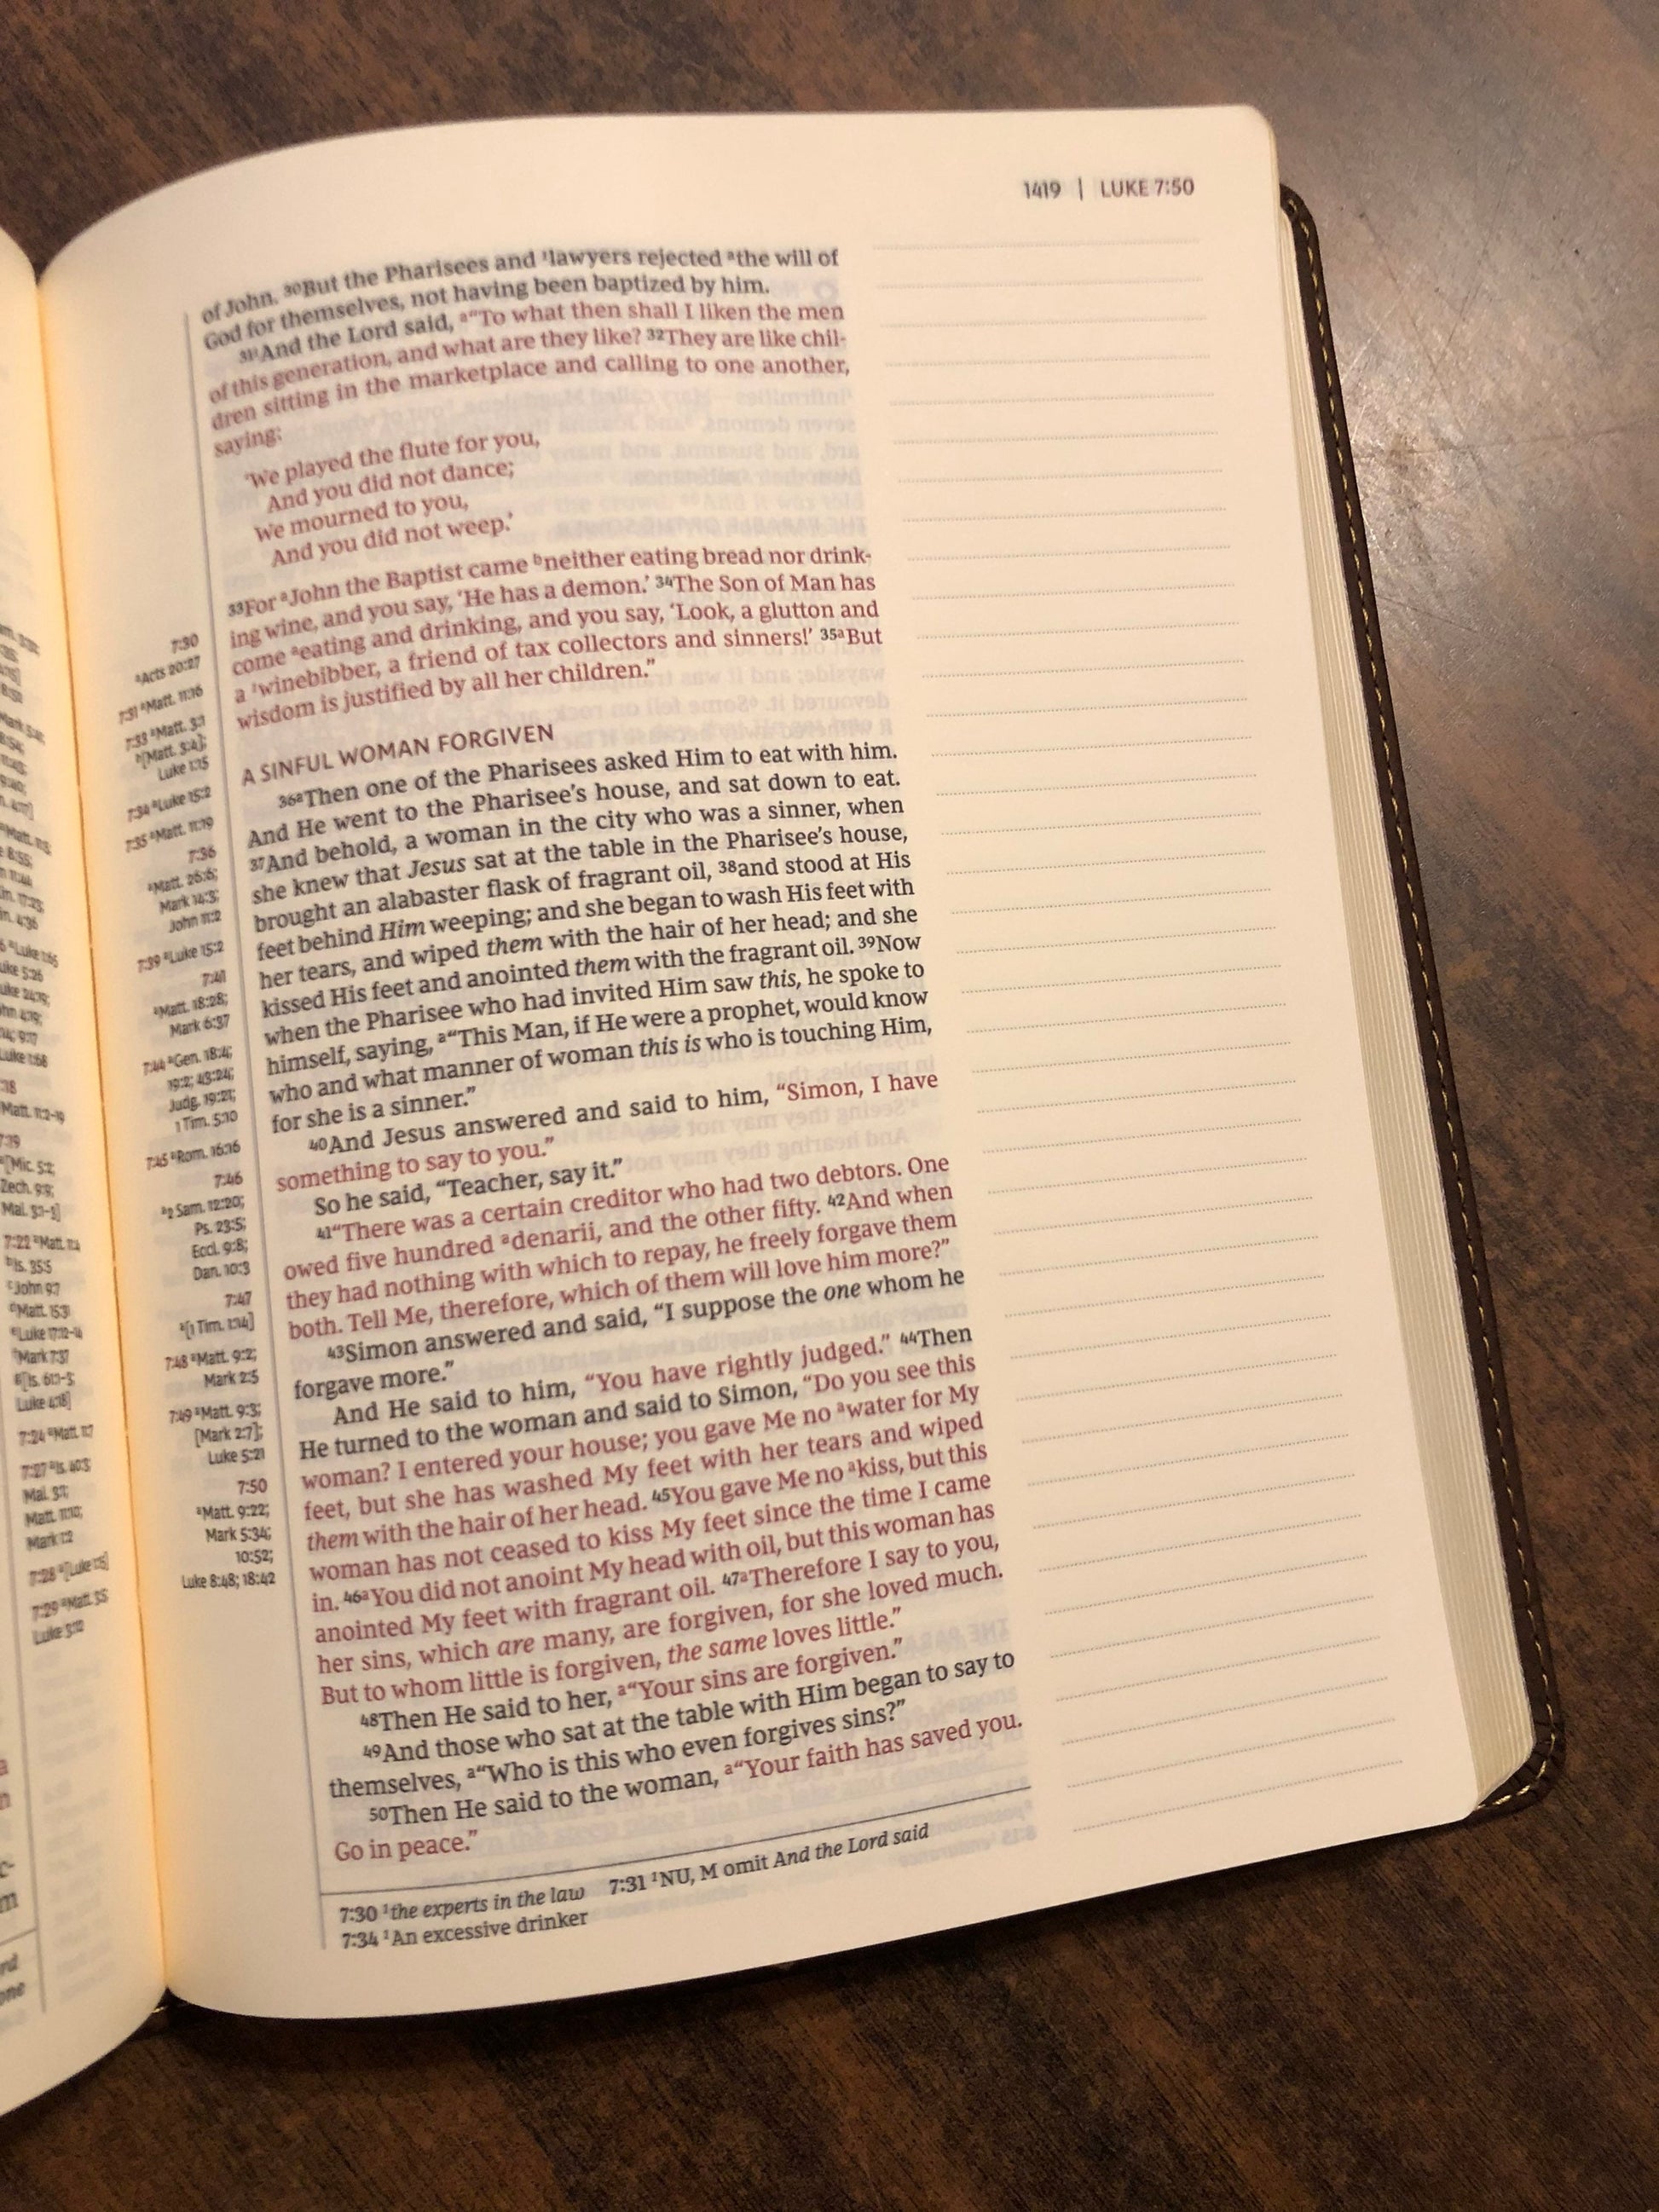 1419 | LUKE 7:50
of John. 30But the Pharisees and 1lawyers rejected athe will of
God for themselves, not having been baptized by him.
311And the Lord said, a“To what then shall I liken the men
of this generation, and what are they like? 32They are like chil-
dren sitting in the marketplace and calling to one another,
saying:
‘We played the flute for you,
And you did not dance;
We mourned to you,
And you did not weep.’
33For aJohn the Baptist came bneither eating bread nor drink-
ing wine, and you say, ‘He has a demon.’ 34The Son of Man has
come aeating and drinking, and you say, ‘Look, a glutton and
a 1winebibber, a friend of tax collectors and sinners!’ 35aBut
wisdom is justified by all her children.”
A SINFUL WOMAN FORGIVEN
36aThen one of the Pharisees asked Him to eat with him.
And He went to the Pharisee’s house, and sat down to eat.
37And behold, a woman in the city who was a sinner, when
she knew that Jesus sat at the table in the Pharisee’s house,
brought an alabaster flask of fragrant oil, 38and stood at His
feet behind Him weeping; and she began to wash His feet with
her tears, and wiped them with the hair of her head; and she
kissed His feet and anointed them with the fragrant oil. 39Now
when the Pharisee who had invited Him saw this, he spoke to
himself, saying, a“This Man, if He were a prophet, would know
who and what manner of woman this is who is touching Him,
for she is a sinner.”
40And Jesus answered and said to him, “Simon, I have
something to say to you.”
So he said, “Teacher, say it.”
41“There was a certain creditor who had two debtors. One
owed five hundred adenarii, and the other fifty. 42And when
they had nothing with which to repay, he freely forgave them
both. Tell Me, therefore, which of them will love him more?”
43Simon answered and said, “I suppose the one whom he
forgave more.”
And He said to him, “You have rightly judged.” 44Then
He turned to the woman and said to Simon, “Do you see this
woman? I entered your house; you gave Me no awater for My
feet, but she has washed My feet with her tears and wiped
them with the hair of her head. 45You gave Me no akiss, but this
woman has not ceased to kiss My feet since the time I came
in. 46aYou did not anoint My head with oil, but this woman has
anointed My feet with fragrant oil. 47aTherefore I say to you,
her sins, which are many, are forgiven, for she loved much.
But to whom little is forgiven, the same loves little.”
48Then He said to her, a“Your sins are forgiven.”
49And those who sat at the table with Him began to say to
themselves, a“Who is this who even forgives sins?”
50Then He said to the woman, a“Your faith has saved you.
Go in peace.”
7:30 1the experts in the law 7:31 1NU, M omit And the Lord said
7:34 1An excessive drinker
7:30
aActs 20:27
7:31 aMatt. 11:16
7:33 aMatt. 3:1
b[Matt. 3:4];
Luke 1:15
7:34 aLuke 15:2
7:35 aMatt. 11:19
7:36
aMatt. 26:6;
Mark 14:3;
John 11:2
7:39 aLuke 15:2
7:41
aMatt. 18:28;
Mark 6:37
7:44 aGen. 18:4;
19:2; 43:24;
Judg. 19:21;
1 Tim. 5:10
7:45 aRom. 16:16
7:46
a2 Sam. 12:20;
Ps. 23:5;
Eccl. 9:8;
Dan. 10:3
7:47
a[1 Tim. 1:14]
7:48 aMatt. 9:2;
Mark 2:5
7:49 aMatt. 9:3;
[Mark 2:7];
Luke 5:21
7:50
aMatt. 9:22;
Mark 5:34;
10:52;
Luke 8:48; 18:42
Matt. 11:2–19
a[Mic. 5:2;
Zech. 9:9;
Mal. 3:1–3]
7:22 aMatt. 11:4
bIs. 35:5
cJohn 9:7
dMatt. 15:31
eLuke 17:12–14
fMark 7:37
g[Is. 61:1–3;
Luke 4:18]
7:24 aMatt. 11:7
7:27 aIs. 40:3
Mal. 3:1;
Matt. 11:10;
Mark 1:2
7:28 a[Luke 1:15]
7:29 aMatt. 3:5
Luke 3:12